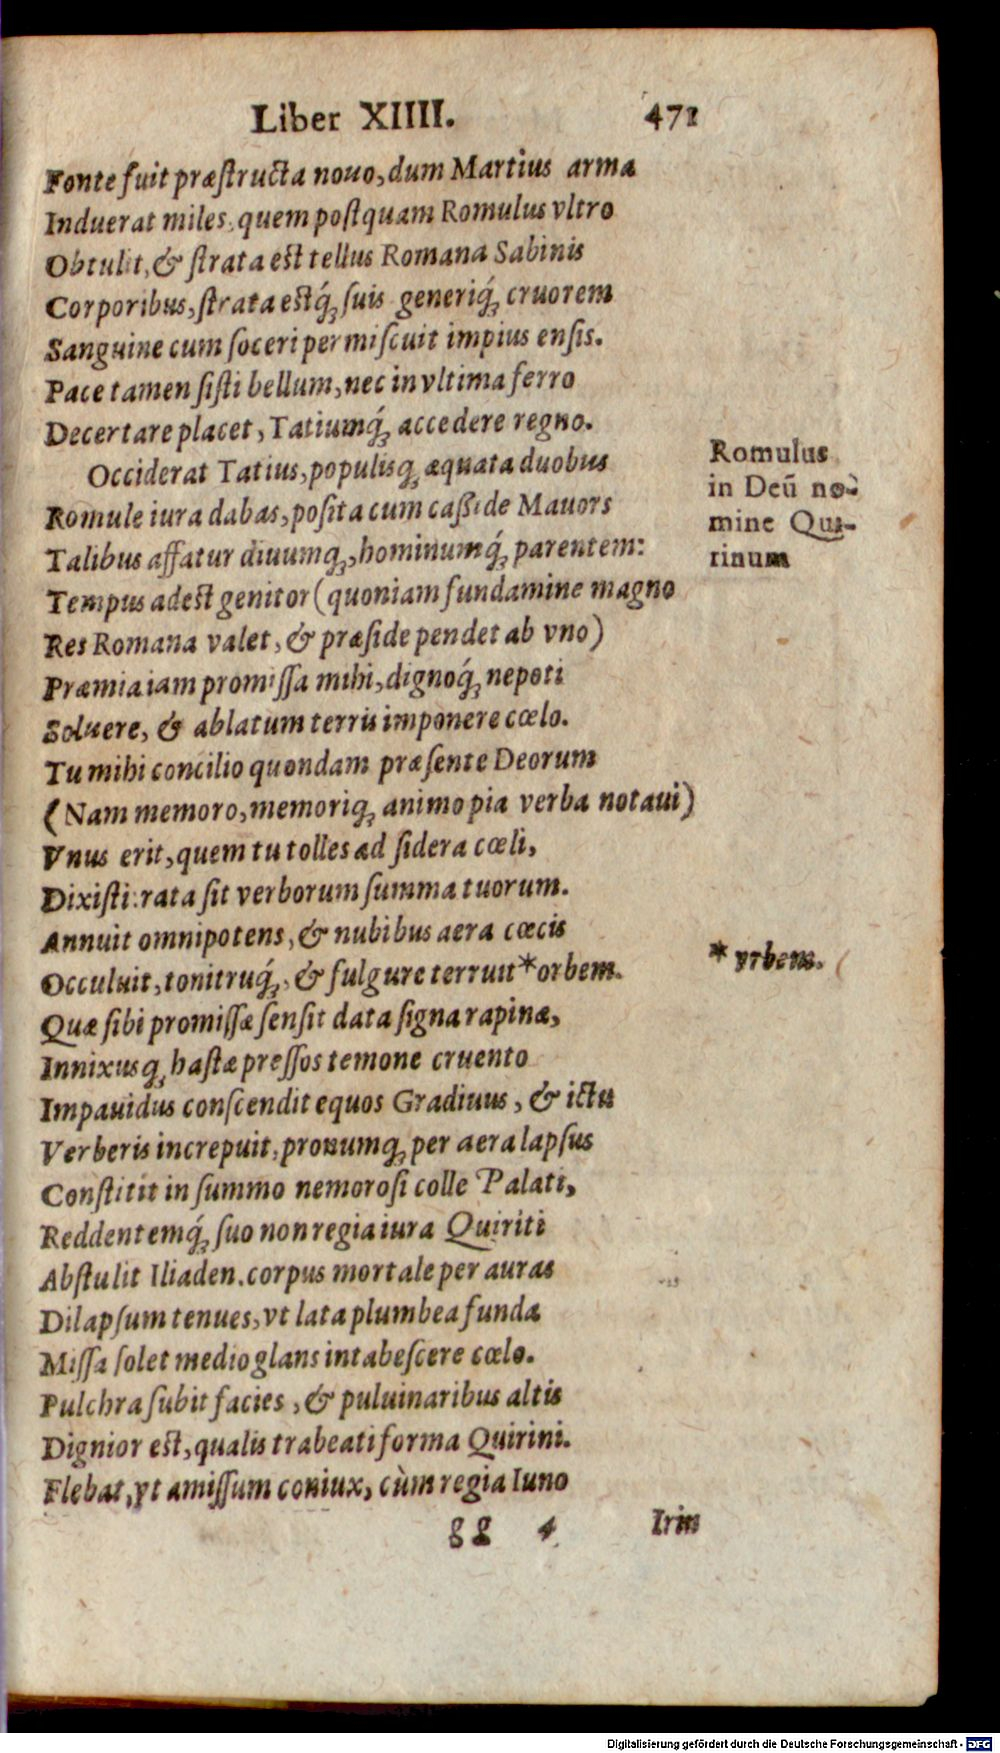 Liber XIIII. 471
Fonte fuit præſtructa nouo, dum Martius arma
Induerat miles, quem poſtquam Romulus vltro
Obtulit, & ſtrata eſt tellus Romana Sabinis
Corporibus, ſtrata eſtq́; ſuis generiq́; cruorem
Sanguine cum ſoceri permiſcuit impius enſis.
Pace tamen ſiſti bellum, nec in vltima ferro
Decertare placet, Tatiumq́; accedere regno.
Occiderat Tatius, populisq; æquata duobus
Romule iura dabas, poſita cum caßide Mauors
Talibus affatur diuumq;, hominumq́; parentem:
Tempus adeſt genitor (quoniam fundamine magno
Res Romana valet, & præſide pendet ab vno)
Præmia iam promiſſa mihi, dignoq́; nepoti
Soluere, & ablatum terris imponere cœlo.
Tu mihi concilio quondam præſente Deorum
(Nam memoro, memoriq; animo pia verba notaui)
Vnus erit, quem tu tolles ad ſidera cœli,
Dixiſti: rata ſit verborum ſumma tuorum.
Annuit omnipotens, & nubibus aera cœcis
Occuluit, tonitruq́;, & fulgure terruit *orbem.
Quæ ſibi promiſſæ ſenſit data ſigna rapinæ,
Innixusq; haſtæ preſſos temone cruento
Impauidus conſcendit equos Gradiuus, & ictu
Verberis increpuit, pronumq; per aera lapſus
Conſtitit in ſummo nemoroſi colle Palati,
Reddentemq́; ſuo non regia iura Quiriti
Abſtulit Iliaden. corpus mortale per auras
Dilapſum tenues, vt lata plumbea funda
Miſſa ſolet medio glans intabeſcere cœlo.
Pulchra ſubit facies, & puluinaribus altis
Dignior eſt, qualis trabeati forma Quirini.
Flebat, vt amiſſum coniux, cùm regia Iuno
gg 4 Irin
Romulus
in Deū no-
mine Qui-
rinum
* vrbem.
Digitalisierung gefördert durch die Deutsche Forschungsgemeinschaft - DFG